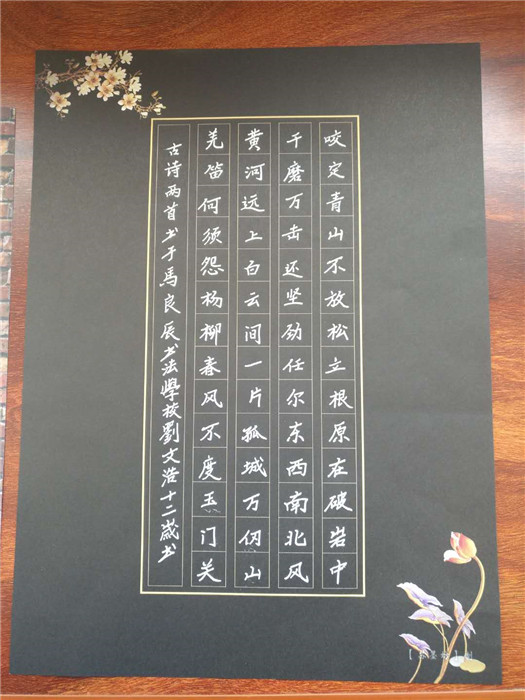 咬定青山不放松立根原在破岩中
千磨万击还坚劲任尔东西南北风
黄河远上白云间一片孤城万仞山
羌笛何须怨杨柳春风不度玉门关
古诗两首书于馬良辰书法學校劉文浩十二歲书